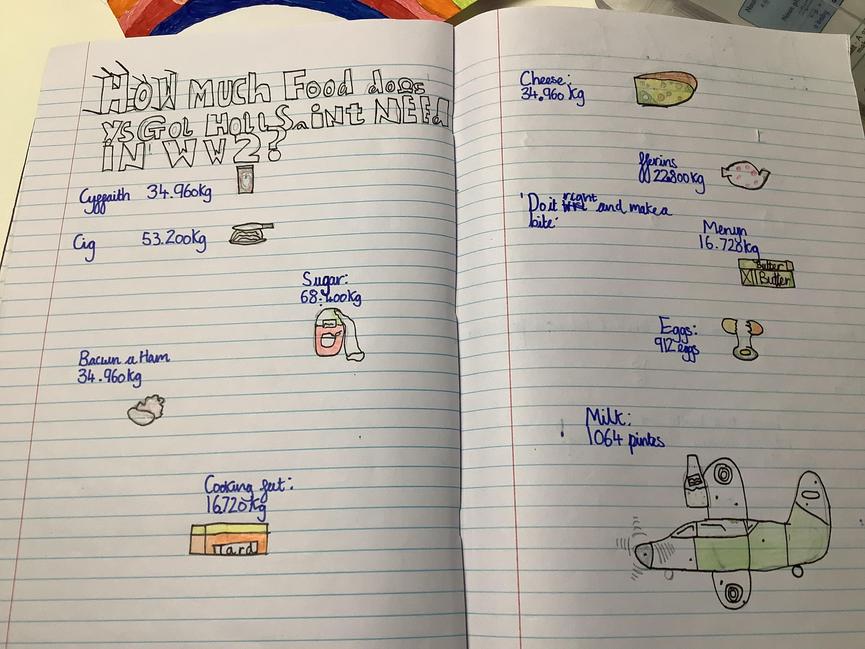 HOW Much Food does
ysGol Holl Saint NEED
IN WW2?
Cyffaith 34.960kg
Cig 53.200kg
Sugar:
68.400kg
Bacwn a Ham
34.960kg
Cooking fat:
16.720kg
Lard
Cheese:
34.960 kg
fferins
22.800kg
'Do it right and make a
bite'
Menyn
16.720kg
Butter
Butter
Eggs:
912 eggs
Milk:
1064 pintes